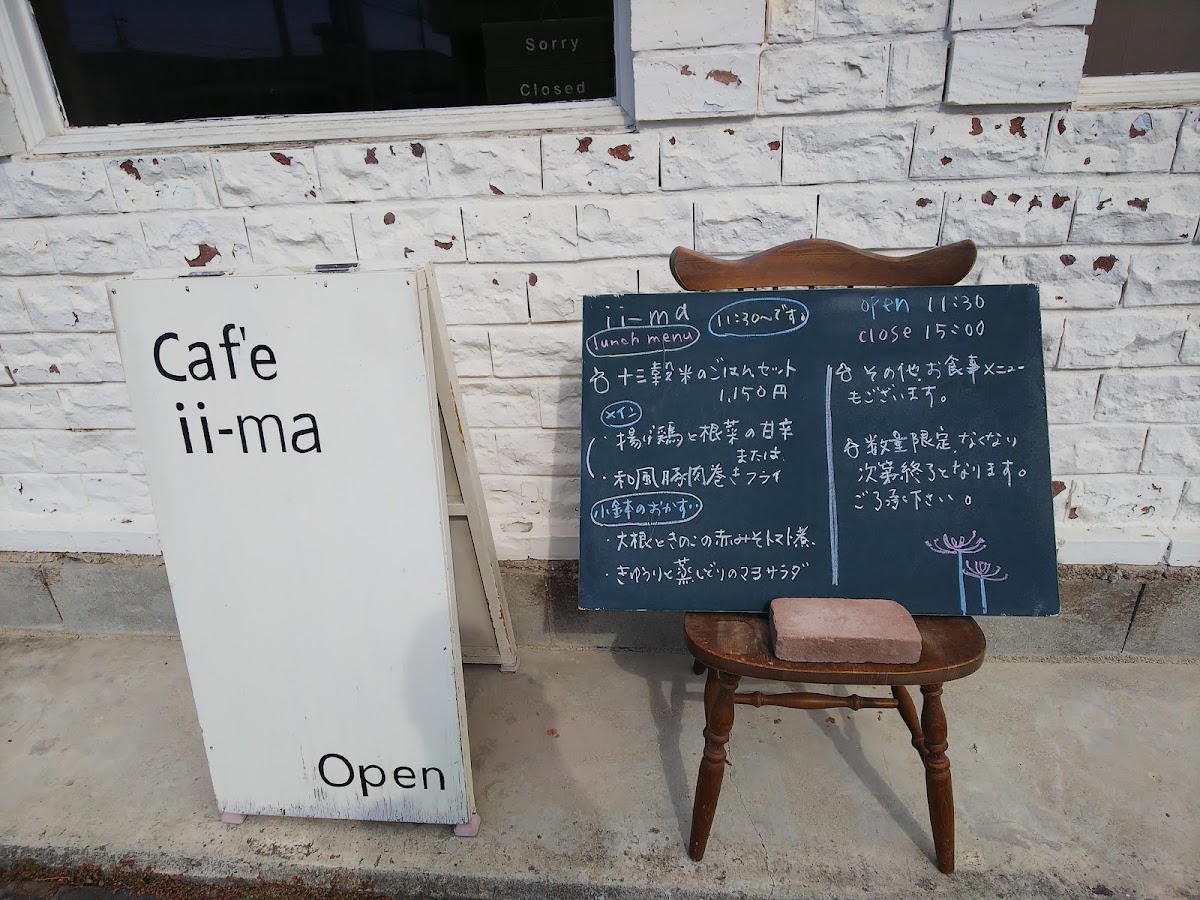 Sorry
Closed
Caf'e
ii-ma
Open
ii-ma
11:30~です。
lunch menu
十三穀米のごはんセット
1,150円
メイン
・揚げ鶏と根菜の甘辛
または
・和風豚肉巻きフライ
小鉢のおかず
・大根ときのこの赤みそトマト煮、
・きゅうりと蒸しどりのマヨサラダ
open 11:30
close 15:00
その他、お食事メニュー
もございます。
数量限定、なくなり
次第終了となります。
ご了承下さい。